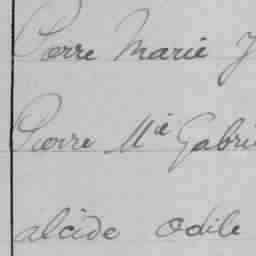 Pierre Marie J
Pierre Mie Gabri
alcide Odile